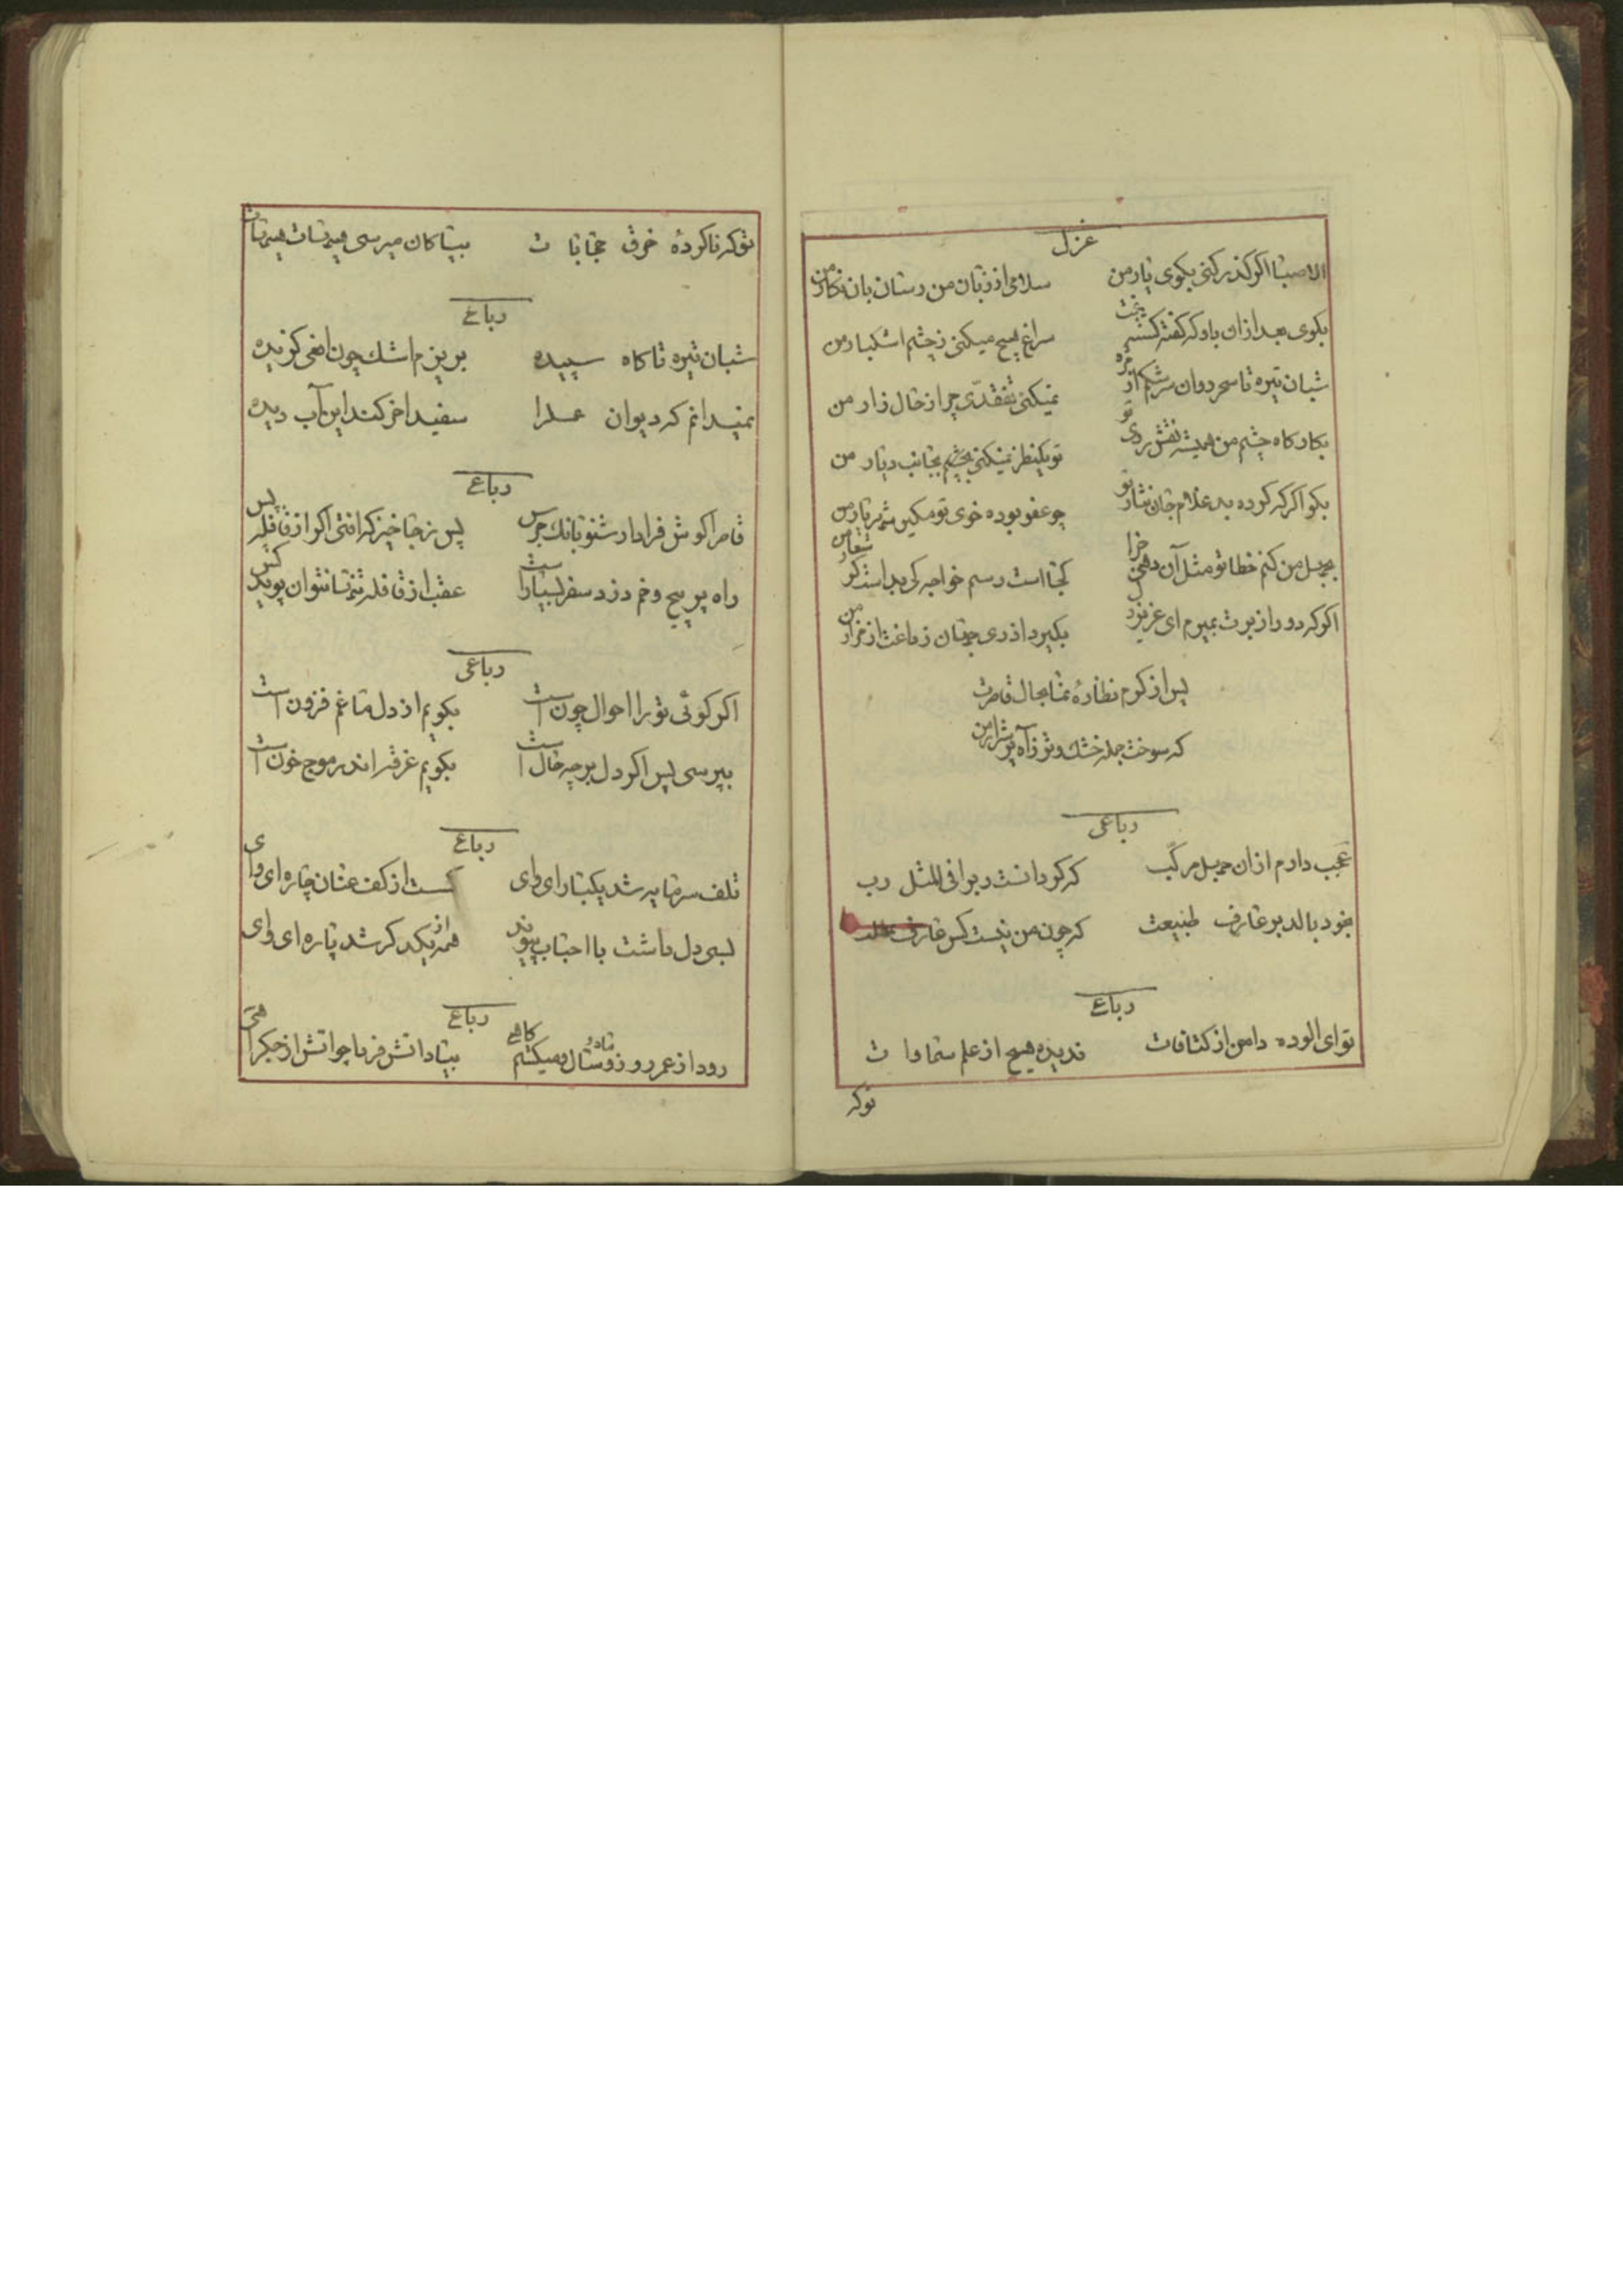 غزل
الا صبا اگر گذر کنی بکوی یار من سلامی از زبان من رسان بان نگار من
بکوی بعد از ان باو که گفته کشته سراغ هیچ میکنی ز چشم اشکبار من
شبان تیره تا سحر دوان سرشکم از مژه نمیکنی تفقدی چرا ز حال زار من
بکار کاه چشم من همیشه نقش روی تو تو یکنظر نمیکنی بچشم بجانب دیار من
بکو اگر که کرده بد غلام جان نثار تو چو عفو بوده خوی تو مکیر
بجهل من کنم خطا تو مثل آن دهی جزا کجا است رسم خواجه کی بد است
اگر که دور از برت بمیرم ای عزیز بگیرد از ری جهان من
پس از کرم نظاره نما بحال قاصرت
که سوخت جمله خشک و تر ز آه پر شرار من
رباعی
عجب دارم از ان جهل مرکب که کو دانست در رافی المثل رب
بخود بالد بر عارف طبیعت که چون من نیست کس عارف
رباعی
تو ای الوده دامن از کثافات ندیده هیچ از علم سماوا ت
توکه
توکه ناکرده خرق حجابا ت بیتا کان میرسی هیهات هیهات
رباعی
شبان تیره تا کاه سپیده بریزم اشک چون افعی کزیده
نمیدانم که دیوان عملرا سفید اخر کند این آب دیده
رباعی
قاصرا کوش فرا دار شنو بانک جرس پس ز جا خیز که افتی اکر از قافله پس
راه پر پیچ و خم دزد سفر بسیار است عقب از قافله تنها نتوان پوید کس
رباعی
اکر کوئی تو را احوال چون است بکویم از دل ما غم فزون است
بپرسی پس اکر دل بر چه حال است بکویم غرقه اندر موج خون است
رباعی
تلف سرمایه شد یکبار ای وای کست از کف عنان چاره ای وای
بسی دل داشت با احباب پیوند همه از یکدکر شد پاره ای وای
رباعی
رود از عمر روز و سال